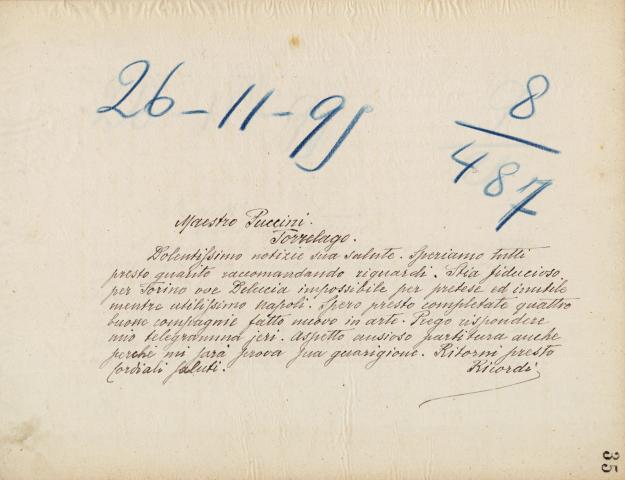 26-11-95
8/487
Maestro Puccini.
Torrelago.
Dolentissimo notizie sua salute. Speriamo tutti
presto guarito raccomandando riguardi. Stia fiducioso
per Torino ove Delucia impossibile per pretese ed inutile
mentre utilissimo Napoli. Spero presto completate quattro
buone compagnie fatto nuovo in arte. Prego rispondere
mio telegramma jeri. Aspetto ansioso partitura anche
perchè mi sarà prova sua guarigione. Ritorni presto
Cordiali saluti. Ricordi
35